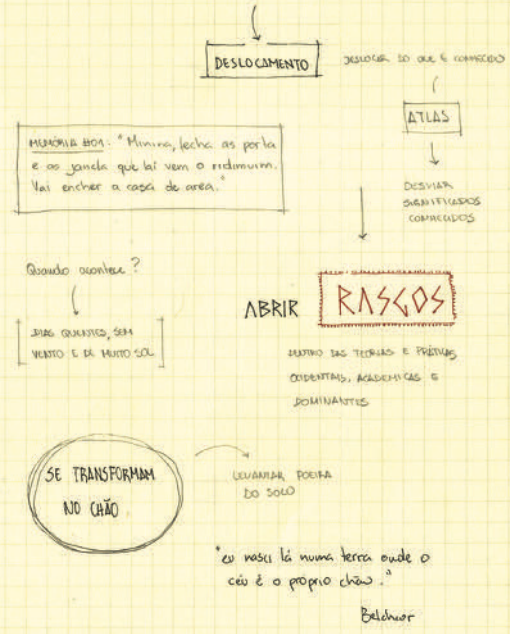 DESLOCAMENTO
DESLOCAR DO QUE É CONHECIDO
ATLAS
DESVIAR
SIGNIFICADOS
CONHECIDOS
MEMÓRIA #01: "Minina, fecha as porta
e as janela que laí vem o ridimuim.
Vai encher a casa de area."
Quando acontece?
DIAS QUENTES, SEM
VENTO E DE MUITO SOL
ABRIR RASGOS
DENTRO DAS TEORIAS E PRÁTICAS
OCIDENTAIS, ACADEMICAS E
DOMINANTES
SE TRANSFORMAM
NO CHÃO
LEVANTAR POEIRA
DO SOLO
"eu nasci lá numa terra onde o
céu é o próprio chão."
Belchior